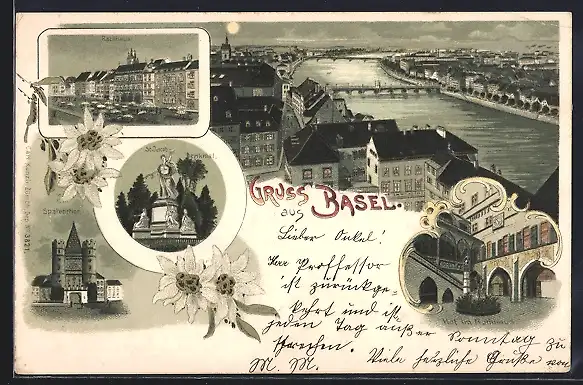 Rathhaus
St. Jacobs Denkmal.
Spalenthor
Gruss
aus Basel.
Hof im Rathhaus
Lieber Onkel!
Herr Proffessor
ist zurückge-
kehrt und ist
jeden Tag außer Sonntag zu
sprechen. Viele herzliche Grüße von
M. M.